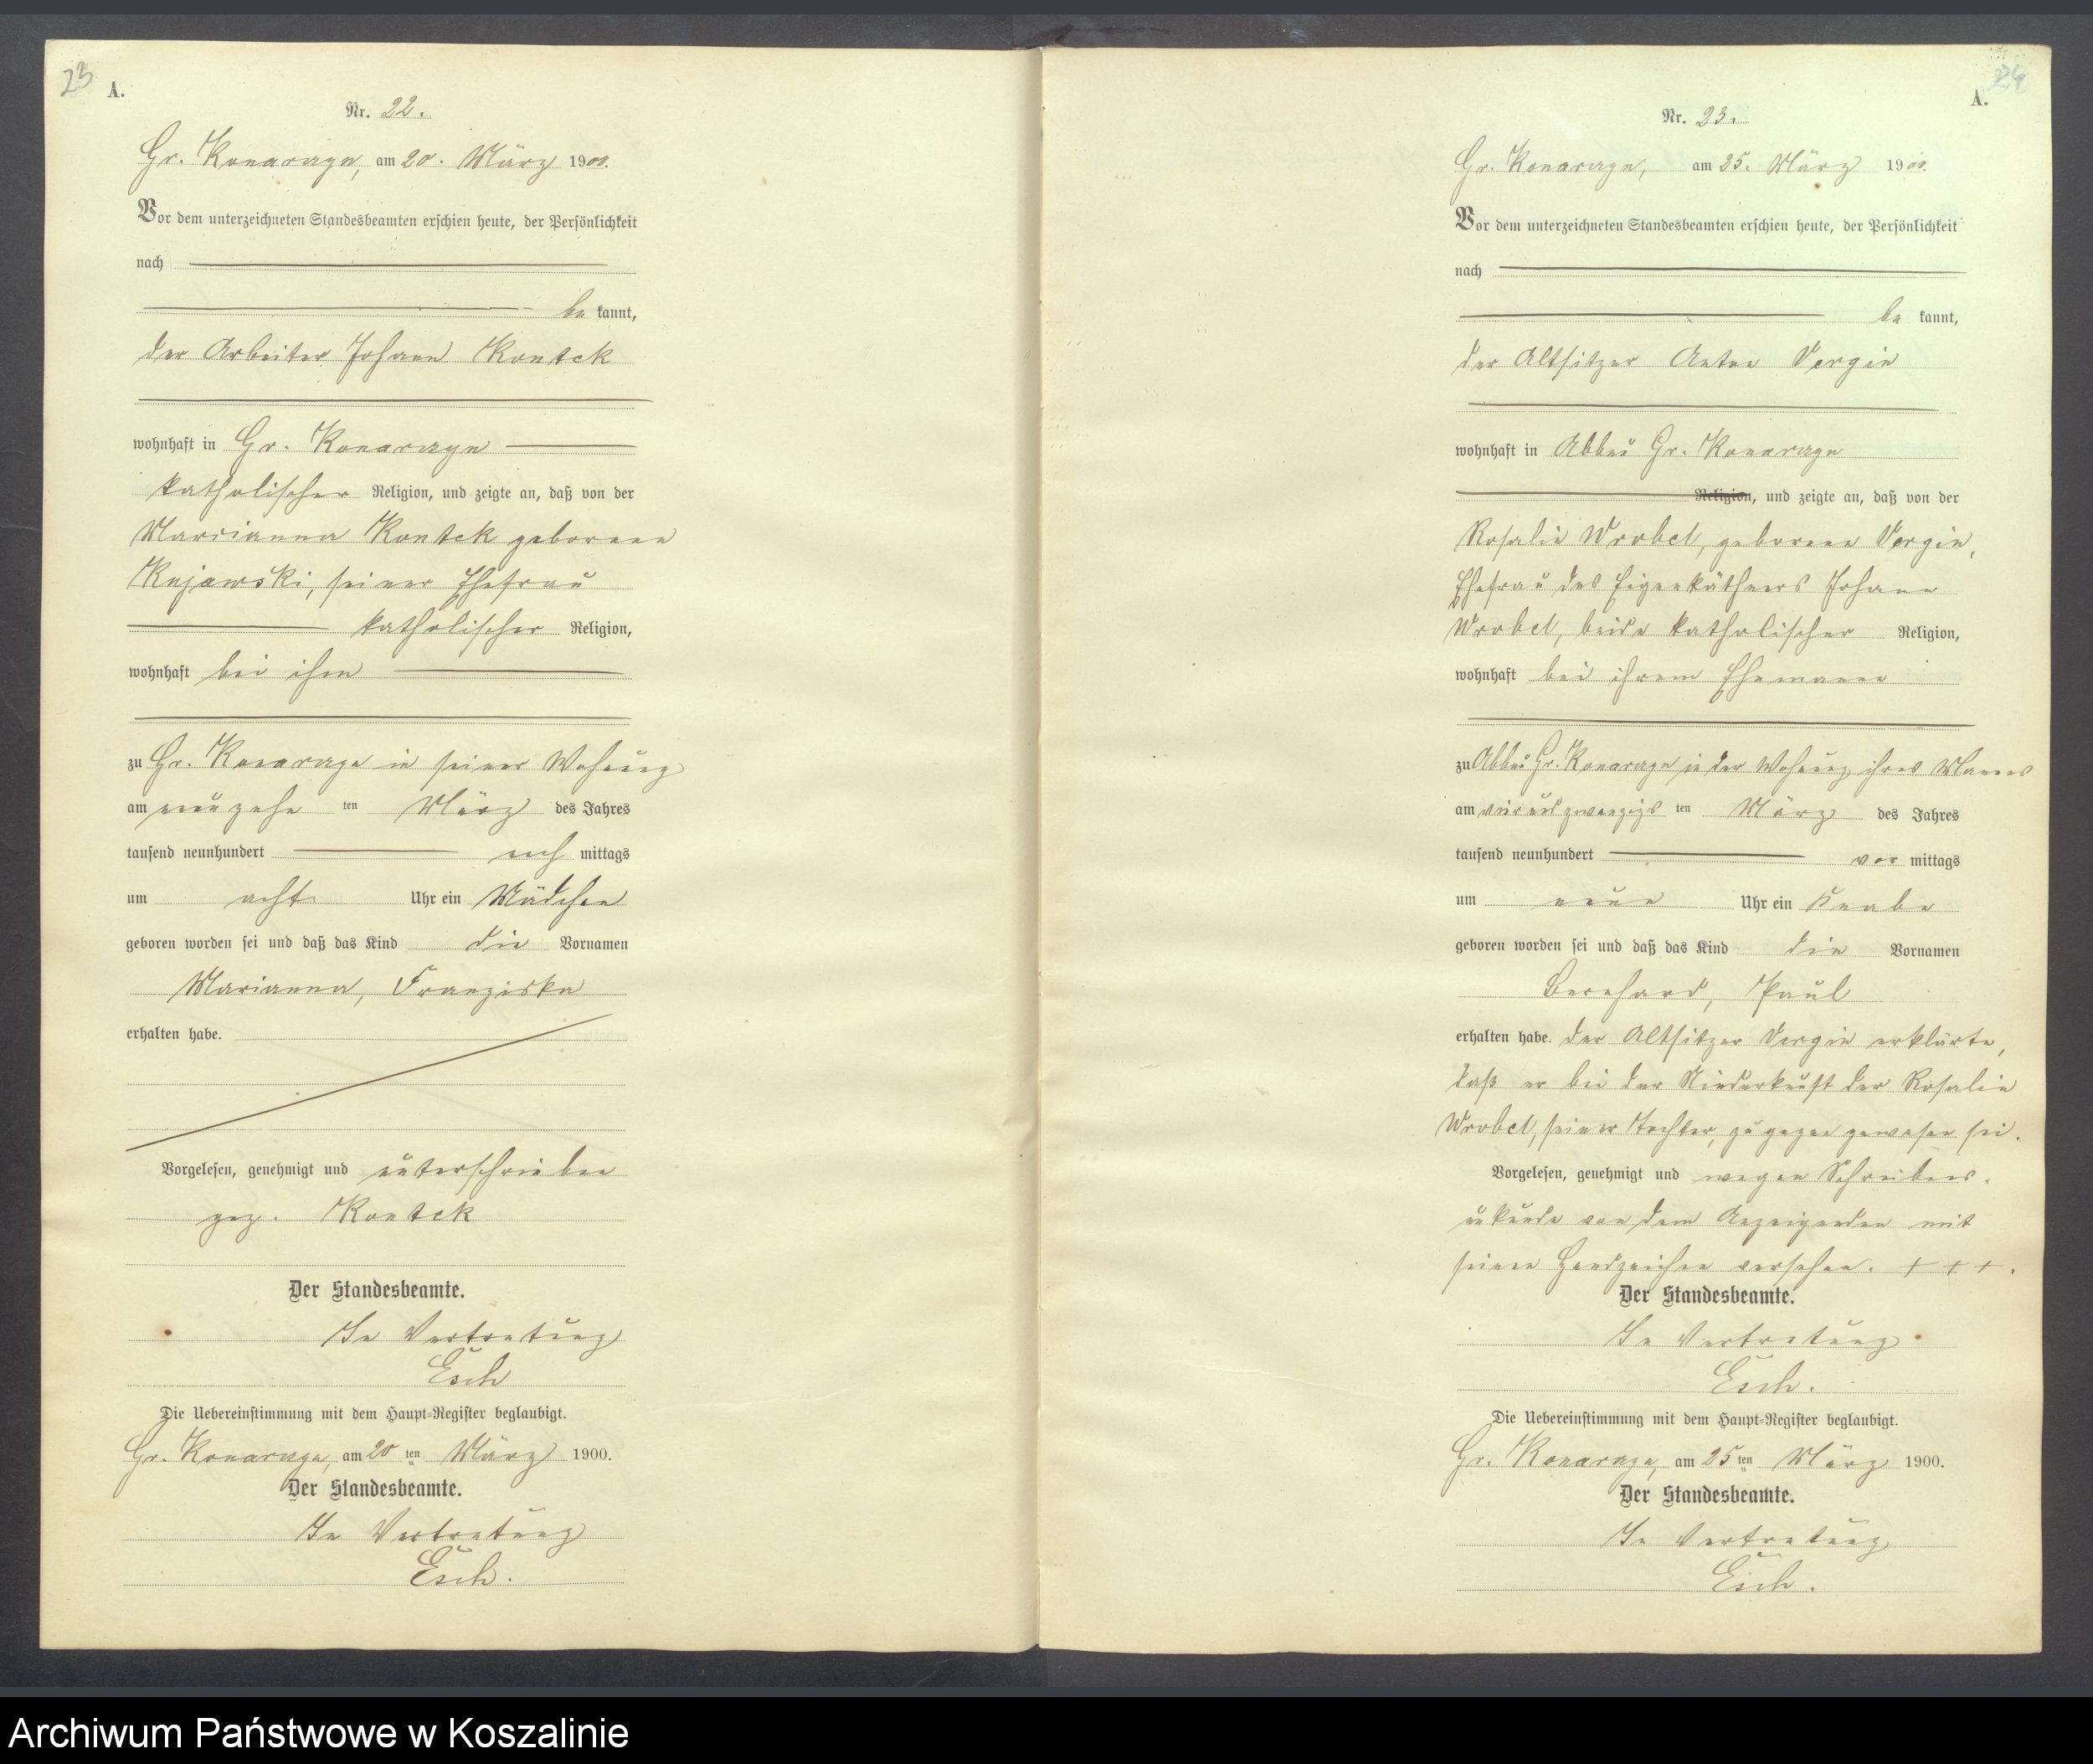 23
A.
Nr. 22.
Gr. Konarczyn, am 20. März 1900.
Vor dem unterzeichneten Standesbeamten erschien heute, der Persönlichkeit
nach
be kannt,
der Arbeiter Johann Kontek
wohnhaft in Gr. Konarczyn
katholischer Religion, und zeigte an, daß von der
Marianna Kontek geborenen
Kujawski, seiner Ehefrau
katholischer Religion,
wohnhaft bei ihm
zu Gr. Konarczyn in seiner Wohnung
am neunzehn ten März des Jahres
tausend neunhundert nach mittags
um acht Uhr ein Mädchen
geboren worden sei und daß das Kind die Vornamen
Marianna, Franziska
erhalten habe.
Vorgelesen, genehmigt und unterschrieben
gez. Kontek
Der Standesbeamte.
In Vertretung
Esch
Die Uebereinstimmung mit dem Haupt-Register beglaubigt.
Gr. Konarczyn, am 20 ten März 1900.
Der Standesbeamte.
In Vertretung
Esch.
24
A.
Nr. 23.
Gr. Konarczyn, am 25. März 1900.
Vor dem unterzeichneten Standesbeamten erschien heute, der Persönlichkeit
nach
be kannt,
der Altsitzer Anton Vergin
wohnhaft in Abbau Gr. Konarczyn
Religion, und zeigte an, daß von der
Rosalie Wrobel, geborenen Vergin,
Ehefrau des Eigenkäthners Johann
Wrobel, beide katholischer Religion,
wohnhaft bei ihrem Ehemanne
zu Abbau Gr. Konarczyn in der Wohnung ihres Mannes
am vierundzwanzigs ten März des Jahres
tausend neunhundert vor mittags
um neun Uhr ein Knabe
geboren worden sei und daß das Kind die Vornamen
Bernhard, Paul
erhalten habe. Der Altsitzer Vergin erklärte,
daß er bei der Niederkunft der Rosalie
Wrobel, seiner Tochter, zugegen gewesen sei.
Vorgelesen, genehmigt und wegen Schreibens-
unkunde von dem Anzeigenden mit
seinen Handzeichen versehen. + + +.
Der Standesbeamte.
In Vertretung
Esch.
Die Uebereinstimmung mit dem Haupt-Register beglaubigt.
Gr. Konarczyn, am 25 ten März 1900.
Der Standesbeamte.
In Vertretung
Esch.
Archiwum Państwowe w Koszalinie